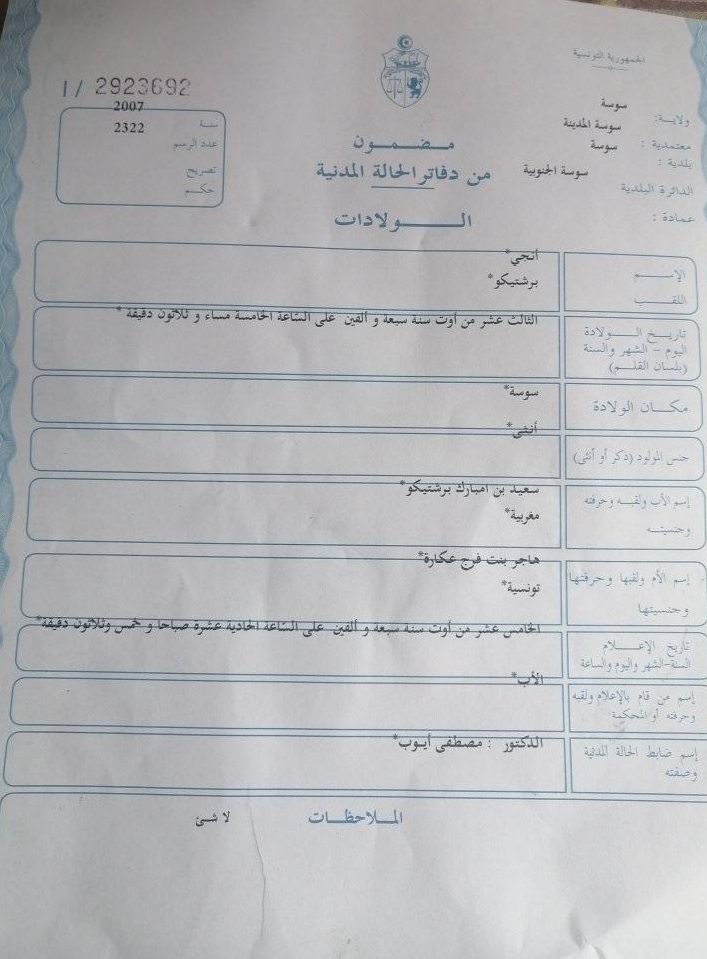 الجمهورية التونسية
1/ 2923692
ولاية: سوسة
معتمدية : سوسة المدينة
بلدية : سوسة
الدائرة البلدية سوسة الجنوبية
عمادة :
سنة 2007
عدد الرسم 2322
تصريح
حكم
مضمون
من دفاتر الحالة المدنية
الولادات
الإسم أنجي*
اللقب برشتيكو*
تاريخ الولادة
اليوم - الشهر والسنة
(بلسان القلم)
الثالث عشر من أوت سنة سبعة و ألفين على الساعة الخامسة مساء و ثلاثون دقيقة *
مكان الولادة سوسة*
جنس المولود (ذكر أو أنثى) أنثى*
إسم الأب ولقبه وحرفته
وجنسيته
سعيد بن امبارك برشتيكو*
مغربية*
إسم الأم ولقبها وحرفتها
وجنسيتها
هاجر بنت فرج عكارة*
تونسية*
تاريخ الإعلام
السنة-الشهر واليوم والساعة
الخامس عشر من أوت سنة سبعة و ألفين على الساعة الحادية عشرة صباحا و خمس وثلاثون دقيقة*
إسم من قام بالإعلام ولقبه
وحرفته أو المحكمة
الأب*
إسم ضابط الحالة المدنية
وصفته
الدكتور : مصطفى أيوب*
الملاحظات
لا شئ